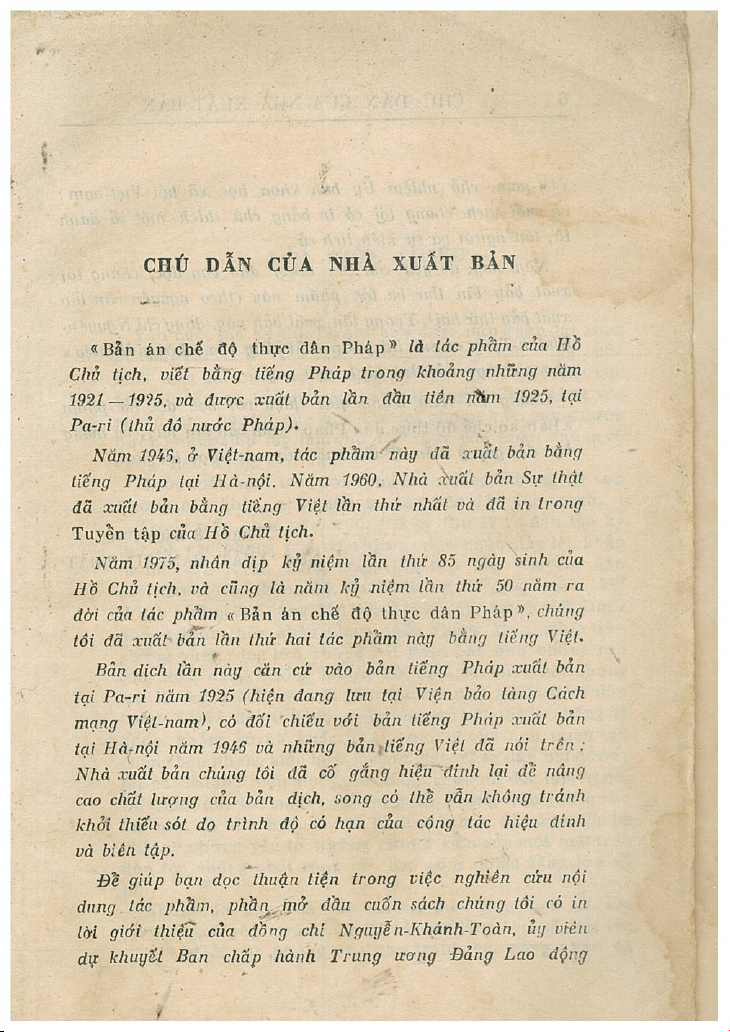 CHÚ DẪN CỦA NHÀ XUẤT BẢN
«Bản án chế độ thực dân Pháp» là tác phẩm của Hồ
Chủ tịch, viết bằng tiếng Pháp trong khoảng những năm
1921 — 1925, và được xuất bản lần đầu tiên năm 1925, tại
Pa-ri (thủ đô nước Pháp).
Năm 1946, ở Việt-nam, tác phẩm này đã xuất bản bằng
tiếng Pháp tại Hà-nội. Năm 1960, Nhà xuất bản Sự thật
đã xuất bản bằng tiếng Việt lần thứ nhất và đã in trong
Tuyển tập của Hồ Chủ tịch.
Năm 1975, nhân dịp kỷ niệm lần thứ 85 ngày sinh của
Hồ Chủ tịch, và cũng là năm kỷ niệm lần thứ 50 năm ra
đời của tác phẩm «Bản án chế độ thực dân Pháp», chúng
tôi đã xuất bản lần thứ hai tác phẩm này bằng tiếng Việt.
Bản dịch lần này căn cứ vào bản tiếng Pháp xuất bản
tại Pa-ri năm 1925 (hiện đang lưu tại Viện bảo tàng Cách
mạng Việt-nam), có đối chiếu với bản tiếng Pháp xuất bản
tại Hà-nội năm 1946 và những bản tiếng Việt đã nói trên;
Nhà xuất bản chúng tôi đã cố gắng hiệu đính lại để nâng
cao chất lượng của bản dịch, song có thể vẫn không tránh
khỏi thiếu sót do trình độ có hạn của công tác hiệu đính
và biên tập.
Để giúp bạn đọc thuận tiện trong việc nghiên cứu nội
dung tác phẩm, phần mở đầu cuốn sách chúng tôi có in
lời giới thiệu của đồng chí Nguyễn-Khánh-Toàn, ủy viên
dự khuyết Ban chấp hành Trung ương Đảng Lao động